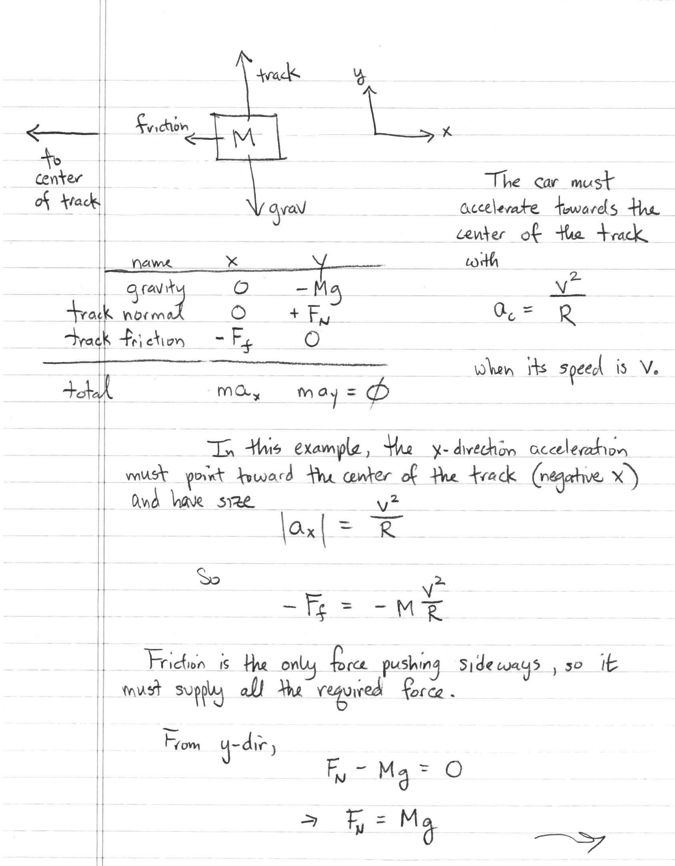 track
y
friction
M
x
to
center
of track
grav
The car must
accelerate towards the
center of the track
with
a_c = v²/R
when its speed is v.
name x y
gravity 0 -Mg
track normal 0 + F_N
track friction - F_f 0
total ma_x ma_y = ∅
In this example, the x-direction acceleration
must point toward the center of the track (negative x)
and have size
|a_x| = v²/R
So
- F_f = - M v²/R
Friction is the only force pushing sideways, so it
must supply all the required force.
From y-dir,
F_N - Mg = 0
⇒ F_N = Mg